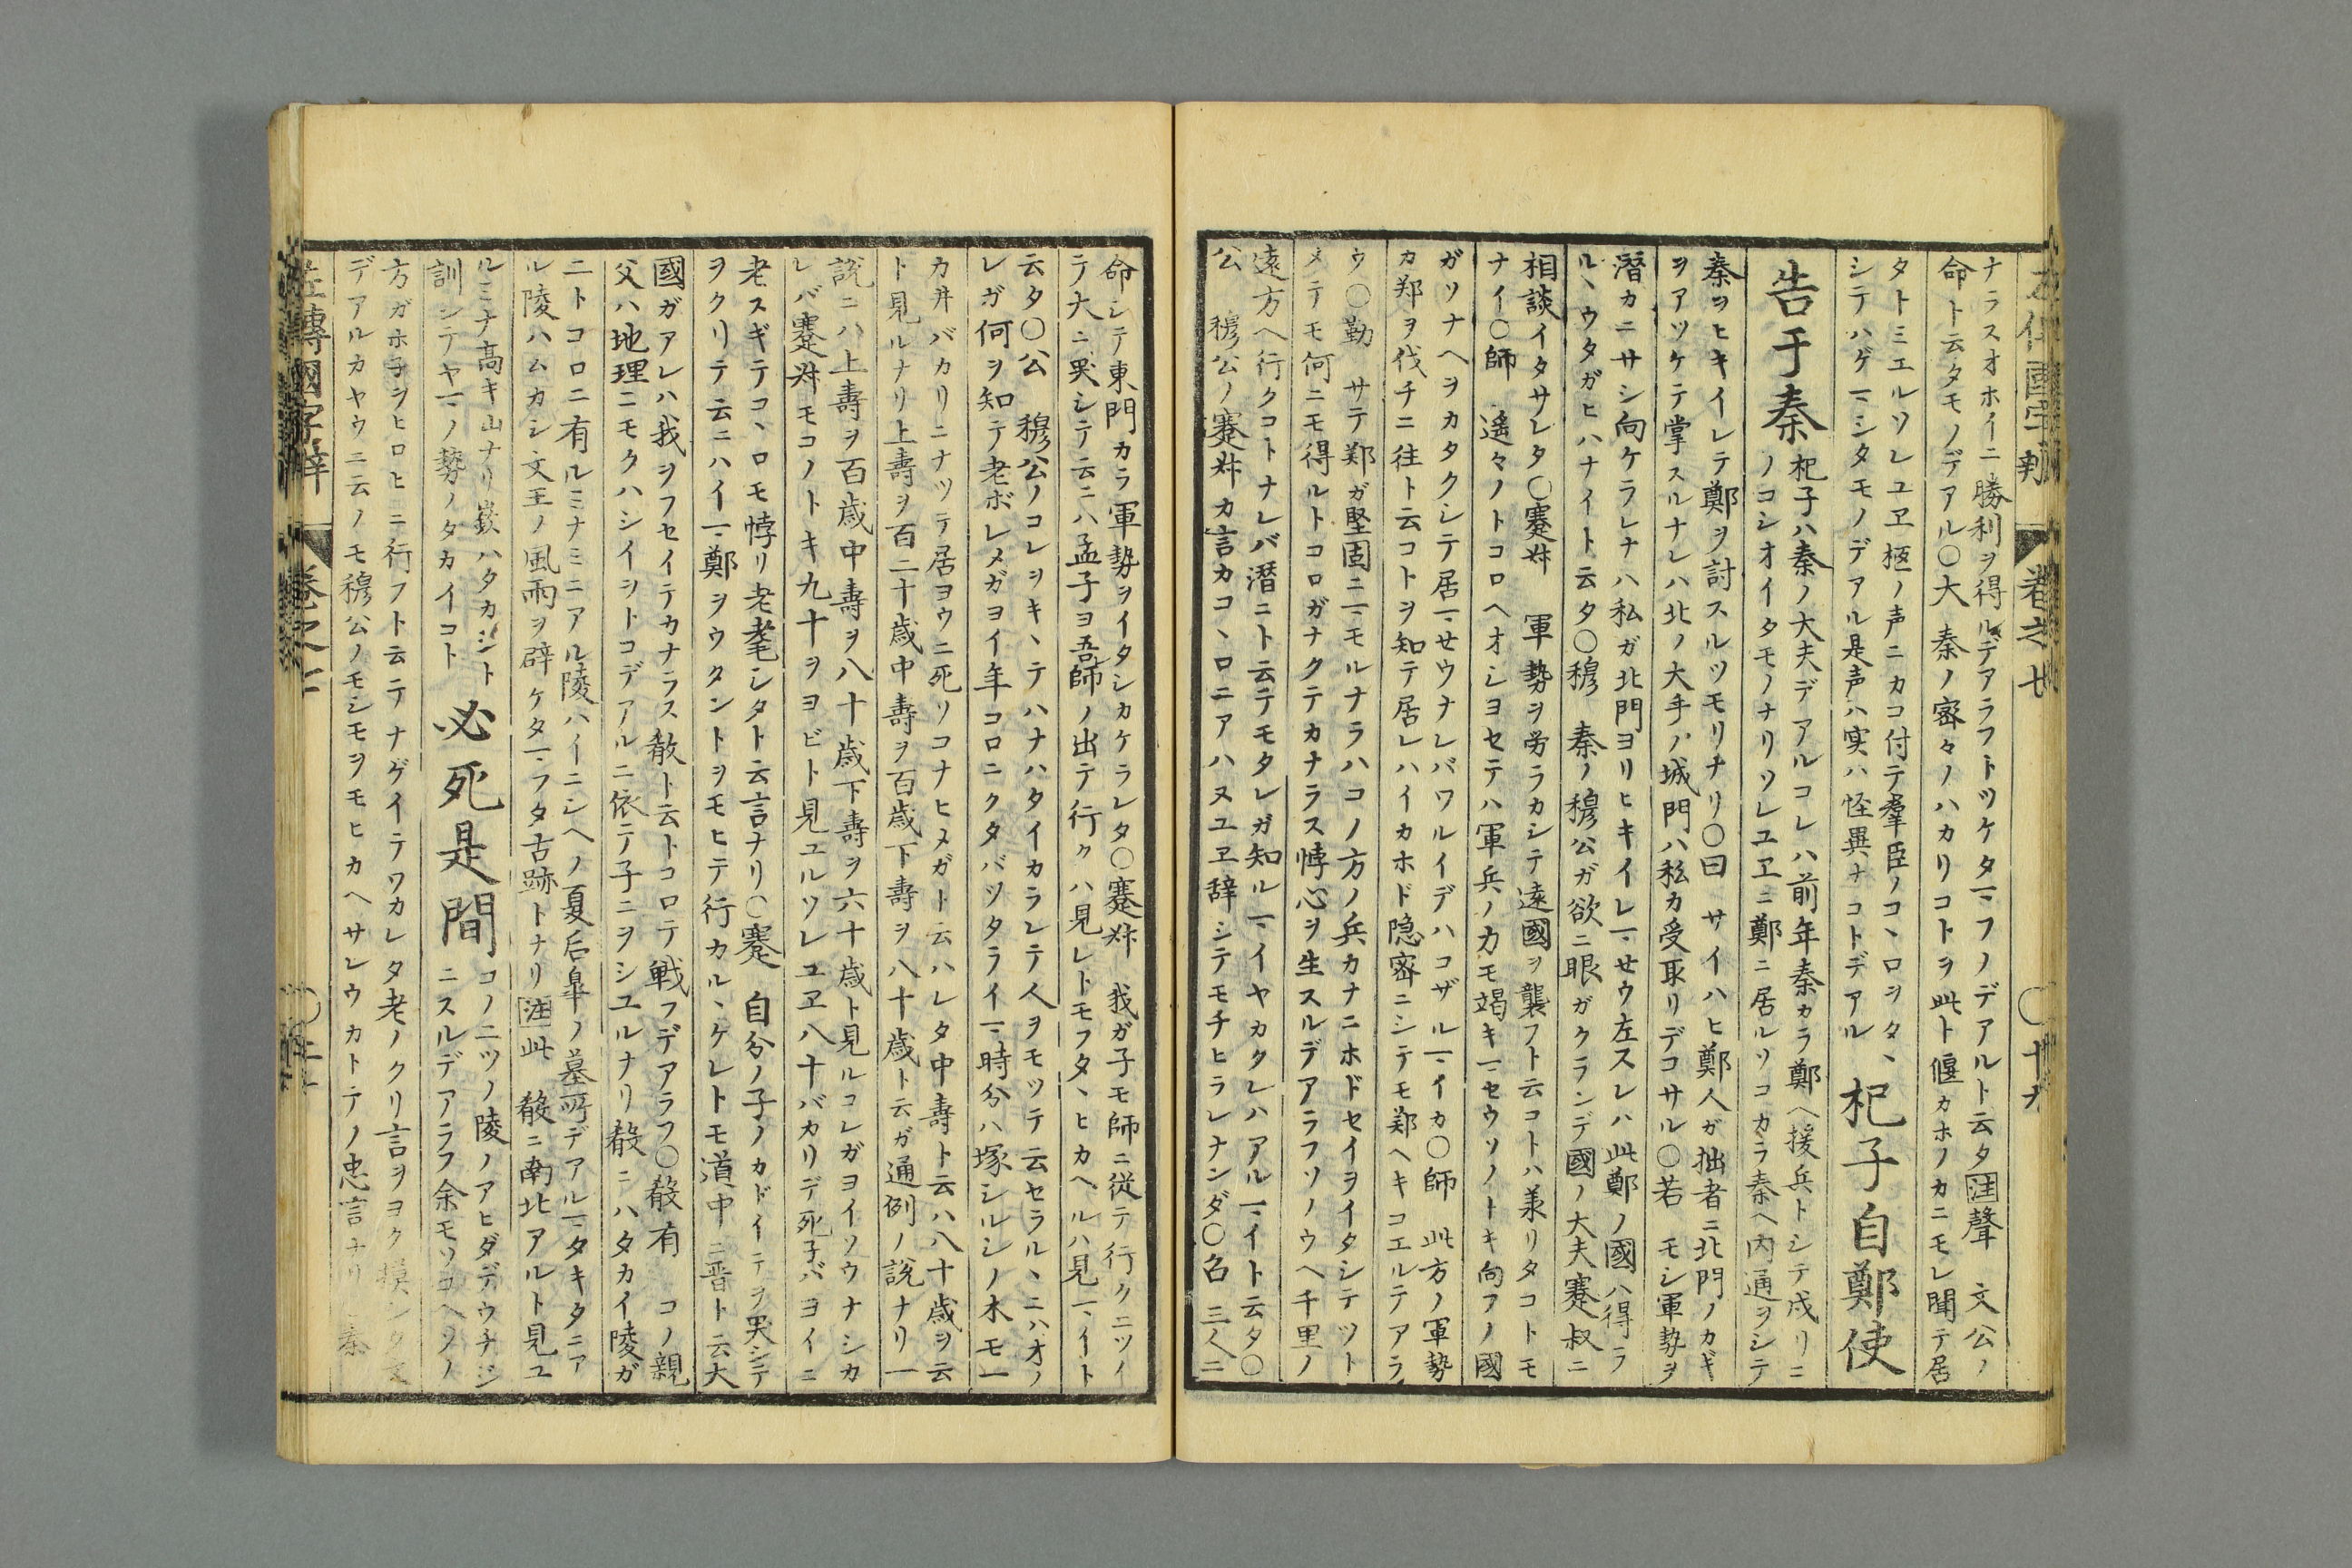 ナラスオホイニ勝利ヲ得ルデアラフトツケタ𪜈フノデアルト云タ注聲 文公ノ
命ト云タモノデアル〇大 秦ノ密々ノハカリコトヲ此ト偃カホノカニモレ聞テ居
タトミエルソレユヱ柩ノ声ニカコ付テ羣臣ノコヽロヲタヽ
シテハゲマシタモノデアル是声ハ実ハ怪異ナコトデアル
杞子自鄭使
告于秦
杞子ハ秦ノ大夫デアルコレハ前年秦カラ鄭ヘ援兵トシテ戍リニ
ノコシオイタモノナリソレユヱニ鄭ニ居ルソコカラ秦ヘ内通ヲシテ
秦ヲヒキイレテ鄭ヲ討スルツモリナリ〇曰 サイハヒ鄭人ガ拙者ニ北門ノカギ
ヲアツケテ掌スルナレハ北ノ大手ノ城門ハ私カ受取リデコサル〇若 モシ軍勢ヲ
潛カニサシ向ケラレナハ私ガ北門ヨリヒキイレマせウ左スレハ此鄭ノ國ハ得ラ
ルヽウタガヒハナイト云タ〇穆 秦ノ穆公ガ欲ニ眼ガクランデ國ノ大夫蹇叔ニ
相談イタサレタ〇蹇叔 軍勢ヲ労ラカシテ遠國ヲ襲フト云コトハ兼リタコトモ
ナイ〇師 遙々ノトコロヘオシヨセテハ軍兵ノ力モ竭キマせウソノトキ向フノ國
ガソナヘヲカタクシテ居マせウナレバワルイデハコザルマイカ〇師 此方ノ軍勢
カ郑ヲ伐チニ往ト云コトヲ知テ居レハイカホド隠密ニシテモ郑ヘキコエルテアラ
ウ〇勤 サテ郑ガ堅固ニマモルナラハコノ方ノ兵カナニホドセイヲイタシテツト
メテモ何ニモ得ルトコロガナクテカナラス悖心ヲ生スルデアラフソノウヘ千里ノ
遠方ヘ行クコトナレバ潛ニト云テモタレガ知ルマイヤカクレハアルマイト云タ〇
公 穆公ノ蹇叔カ言カコヽロニアハヌユヱ辞シテモチヒラレナンダ〇召 三人ニ
命シテ東門カラ軍勢ヲイタシカケラレタ〇蹇叔 我ガ子モ師ニ従テ行クニツイ
テ大ニ哭シテ云ニハ孟子ヨ吾師ノ出テ行クハ見レトモフタヽヒカヘルハ見マイト
云タ〇公 穆公ノコレヲキヽテハナハタイカラレテ人ヲモツテ云セラルヽニハオノ
レガ何ヲ知テ老ボレメガヨイ年コロニクタバツタライマ時分ハ塚シルシノ木モ一
カヰバカリニナツテ居ヨウニ死ソコナヒメガト云ハレタ中壽ト云ハ八十歳ヲ云
ト見ルナリ上壽ヲ百二十歳中壽ヲ百歳下壽ヲ八十歳ト云ガ通例ノ說ナリ一
說ニハ上壽ヲ百歳中壽ヲ八十歳下壽ヲ六十歳ト見ルコレガヨイソウナシカ
レバ蹇叔モコノトキ九十ヲヨビト見ユルソレユヱ八十バカリデ死子バヨイニ
老スギテコヽロモ悖リ老耄シタト云言ナリ〇蹇 自分ノ子ノカドイテヲ哭シテ
ヲクリテ云ニハイマ鄭ヲウタントヲモヒテ行カルヽケレトモ道中ニ晋ト云大
國ガアレハ我ヲフセイテカナラス殽ト云トコロテ戦フデアラフ〇殽有 コノ親
父ハ地理ニモクハシイヲトコデアルニ依テ子ニヲシユルナリ殽ニハタカイ陵ガ
ニトコロニ有ルミナミニアル陵ハイニシヘノ夏后皐ノ墓所デアルマタキタニア
ル陵ハムカシ文王ノ風雨ヲ辟ケタマフタ古跡トナリ注此 殽ニ南北アルト見ユ
ルミナ高キ山ナリ嶔ハタカシト
訓シテヤマノ勢ノタカイコト
必死是間
コノニツノ陵ノアヒダデウチジ
ニスルデアラフ余モソコヘソノ
方ガホ子ヲヒロヒニ行フト云テナゲイテワカレタ老ノクリ言ヲヨク
デアルカヤウニ云ノモ穆公ノモシモヲモヒカヘサレウカトテノ忠言ナリ 秦
左傳國字辯 卷之七